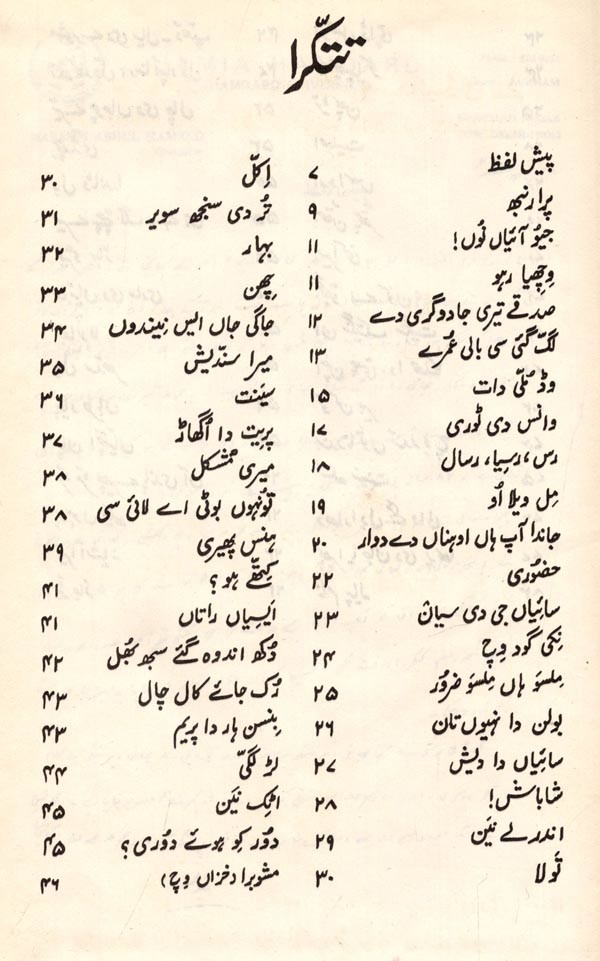 تتکرا
پیش لفظ ۷
پرارنبھ ۹
جیوٗ آئیاں نوں! ۱۱
وچھیا رہو ۱۱
صدقے تیری جادوگری دے ۱۲
لگ گئی سی بالی عُمرے ۱۳
وڈمُلّی دات ۱۵
وانس دی ٹوری ۱۷
رس، رسیا، رسال ۱۸
مِل ویلا اُو ۱۹
جاندا آپ ہاں اوہناں دے دوار ۲۰
حضوُری ۲۲
سائیاں جی دی سیان ۲۳
نِکی گود وِچ ۲۴
مِلسو ہاں مِلسو ضروُر ۲۵
بولن دا نہیوں تان ۲۶
سائیاں دا دیش ۲۷
شاباش! ۲۸
اندرلے نَین ۲۹
تولا ۳۰
اِکلّ ۳۰
تُر دی سنجھ سویر ۳۱
بہار ۳۲
چِھن ۳۳
جاگی جاں ایس نیندوں ۳۴
میرا سندیش ۳۵
سینت ۳۶
پریت دا اُگھاڑ ۳۷
میری مُشکل ۳۸
توُنہوں بوٹی اے لائی سی ۳۸
ہنس پھیری ۳۹
کِتھّے ہو؟ ۴۱
ایسیاں راتاں ۴۱
دُکھ اندوہ گئے سبھ بھُل ۴۲
رُک جائے کال چال ۴۳
بِنسن ہار دا پریم ۴۳
لڑ لگّی ۴۴
اٹک نَین ۴۵
دوُر کو ہوئے دوُری؟ ۴۵
مشوبرا دخزاں وِچ) ۴۶